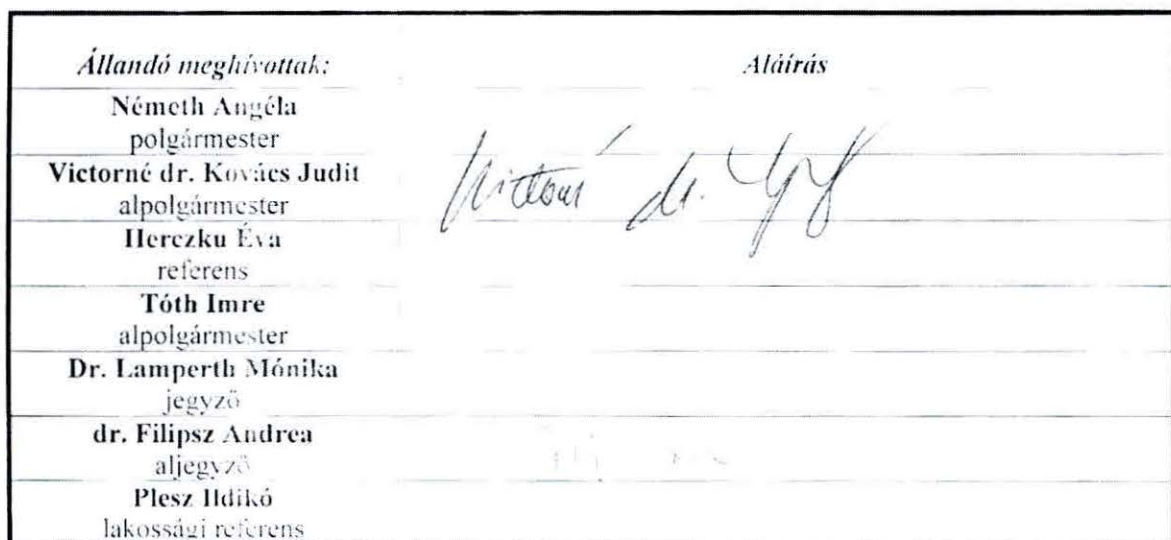 Állandó meghívottak: Aláírás
Németh Angéla
polgármester
Victorné dr. Kovács Judit
alpolgármester
Victorné dr.
Herczku Éva
referens
Tóth Imre
alpolgármester
Dr. Lamperth Mónika
jegyző
dr. Filipsz Andrea
aljegyző
Plesz Ildikó
lakossági referens